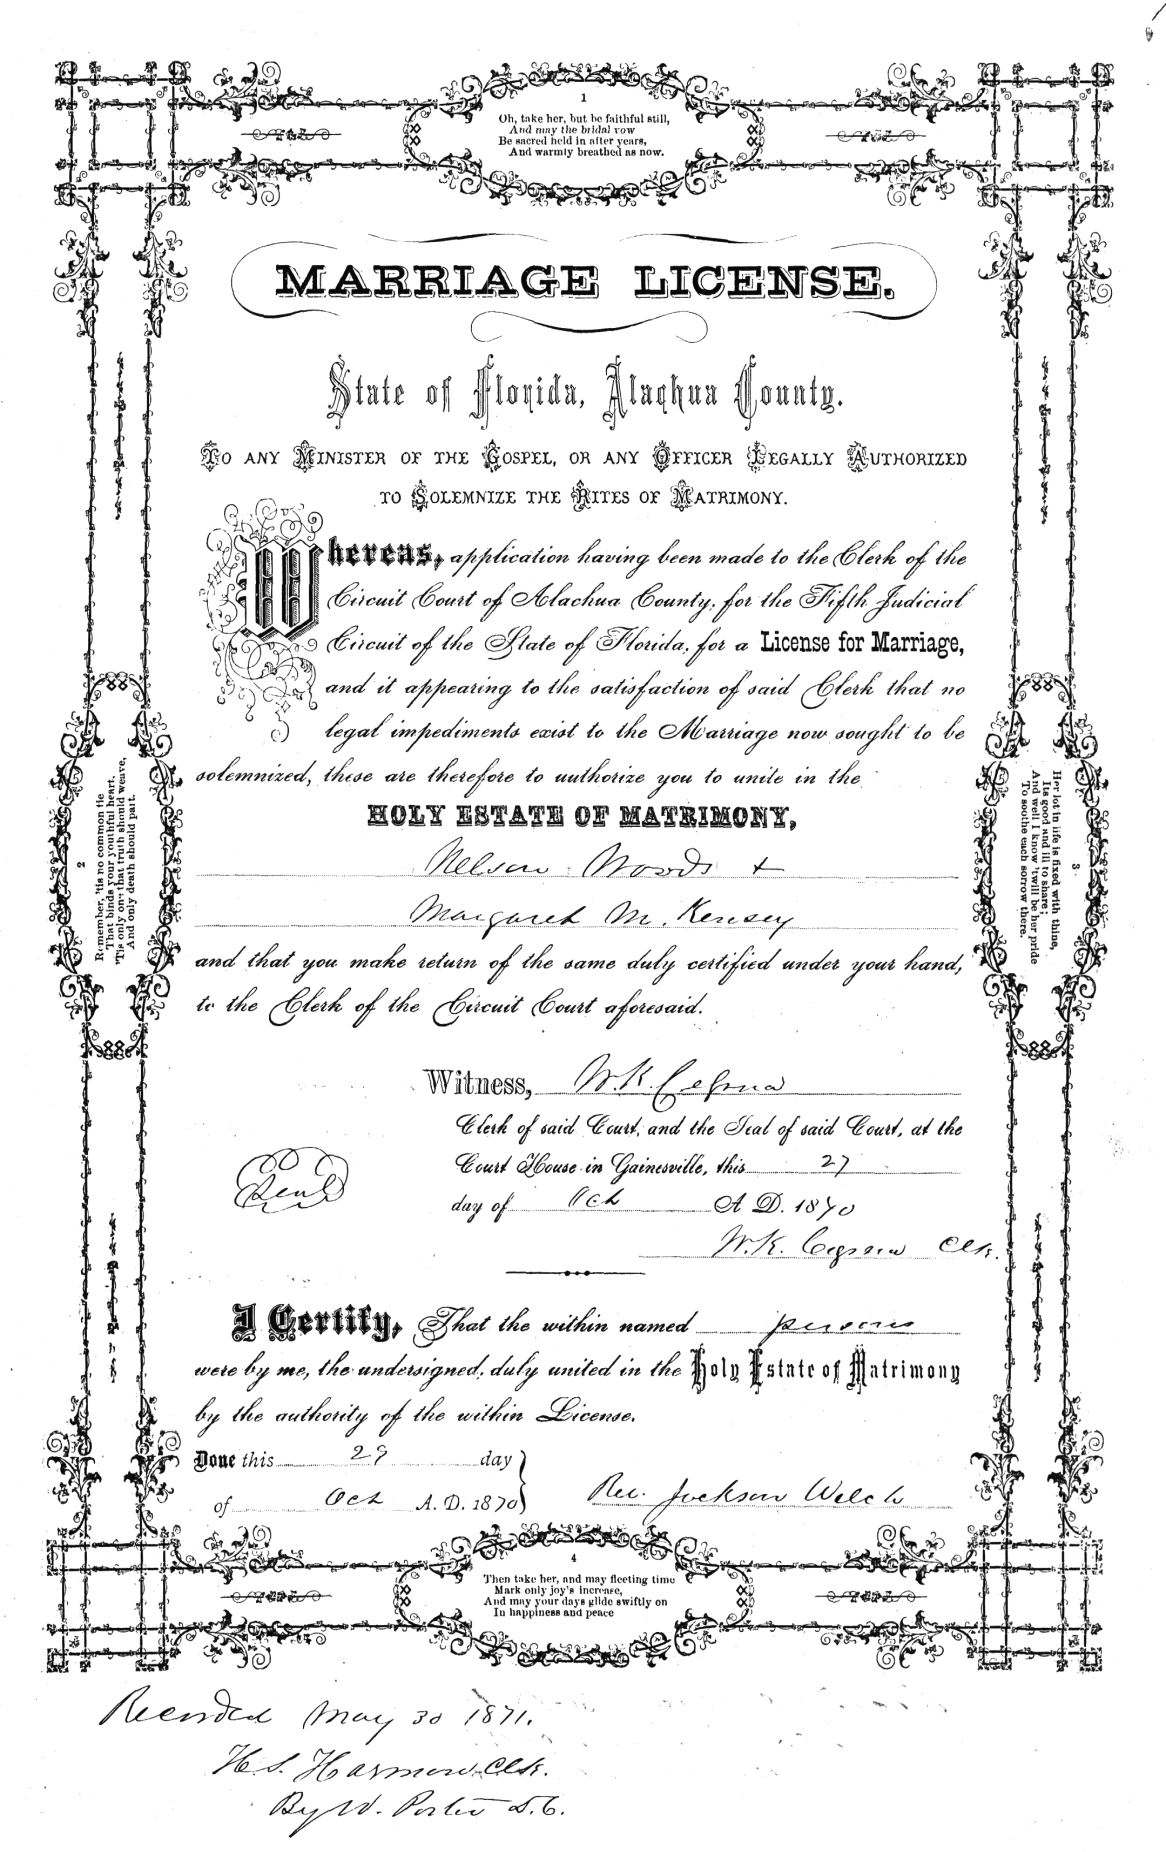 1
Oh, take her, but be faithful still,
And may the bridal vow
Be sacred held in after years,
And warmly breathed as now.
MARRIAGE LICENSE.
State of Florida, Alachua County.
TO ANY MINISTER OF THE GOSPEL, OR ANY OFFICER LEGALLY AUTHORIZED
TO SOLEMNIZE THE RITES OF MATRIMONY.
Whereas, application having been made to the Clerk of the
Circuit Court of Alachua County, for the Fifth Judicial
Circuit of the State of Florida, for a License for Marriage,
and it appearing to the satisfaction of said Clerk that no
legal impediments exist to the Marriage now sought to be
solemnized, these are therefore to authorize you to unite in the
HOLY ESTATE OF MATRIMONY,
Nelson Woods +
Margaret M. Kensey
and that you make return of the same duly certified under your hand,
to the Clerk of the Circuit Court aforesaid.
Witness, W. K. Cessna
Clerk of said Court, and the Seal of said Court, at the
Court House in Gainesville, this 27
day of Oct A. D. 1870
W. K. Cessna Clk.
Seal
I Certify, That the within named persons
were by me, the undersigned, duly united in the Holy Estate of Matrimony
by the authority of the within License.
Done this 29 day
of Oct A. D. 1870
Rev. Jackson Welch
2
Remember, 'tis no common tie
That binds your youthful heart,
'Tis only one that truth should weave,
And only death should part.
3
Her lot in life is fixed with thine,
Its good and ill to share;
And well I know 'twill be her pride
To soothe each sorrow there.
4
Then take her, and may fleeting time
Mark only joy's increase,
And may your days glide swiftly on
In happiness and peace
Recorded May 30 1871.
H. S. Harmon Clk.
By W. Porter D. C.